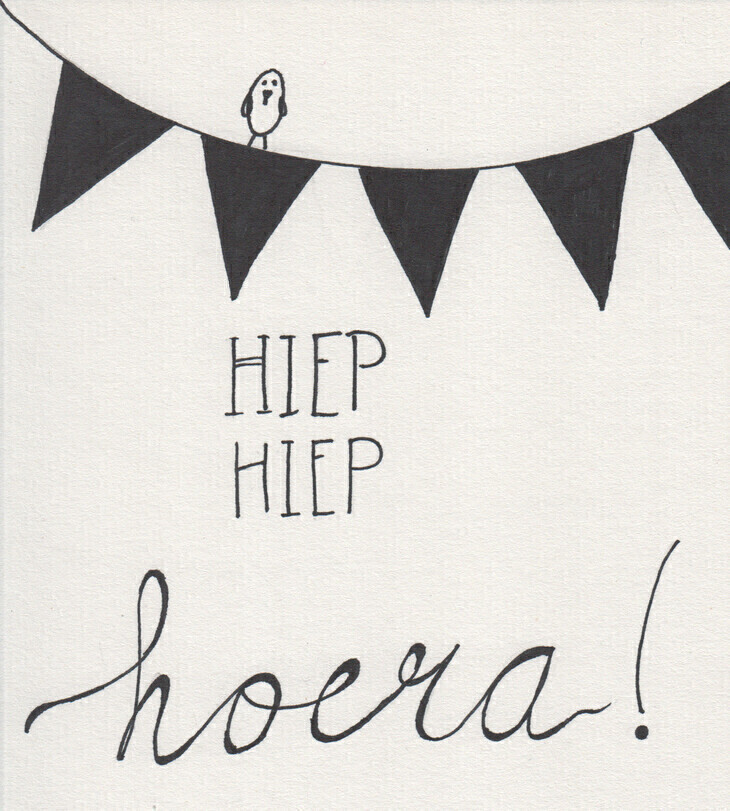 HIEP
HIEP
hoera!